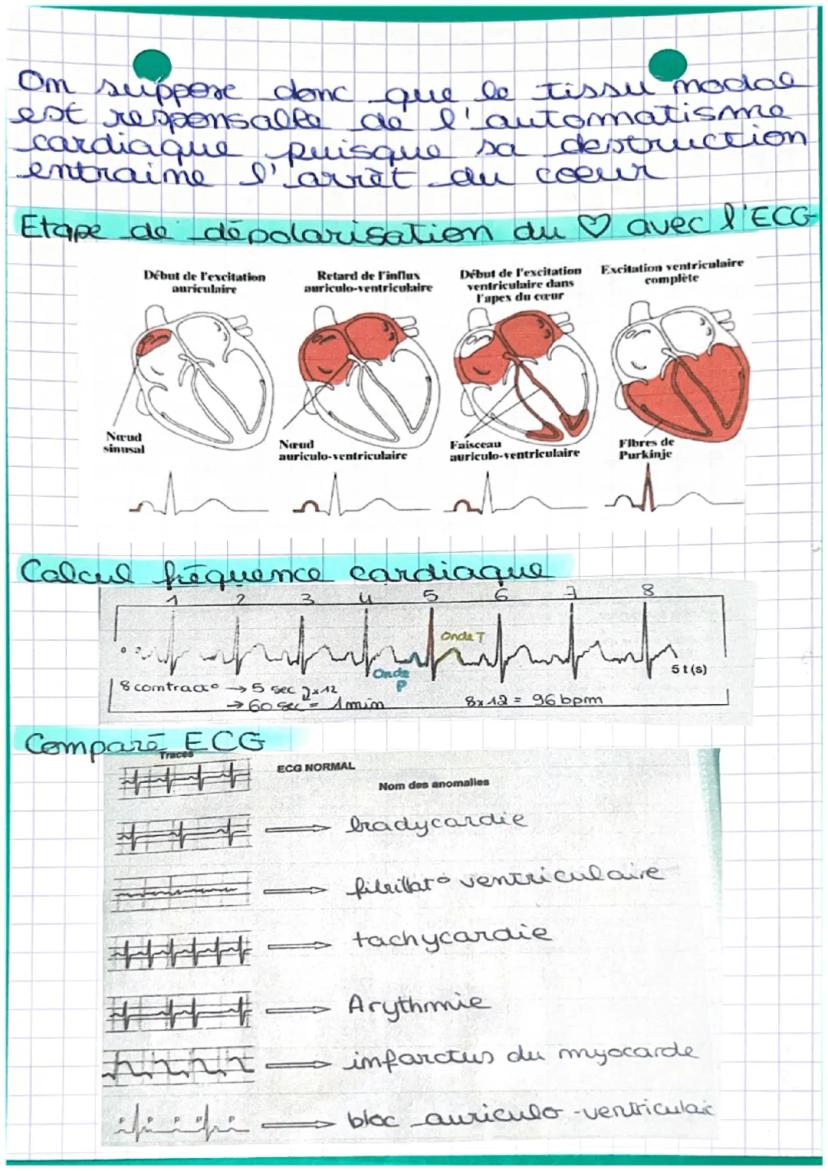 On suppose donc que le tissu nodal
est responsable de l'automatisme
cardiaque puisque sa destruction
entraine l'arrêt du coeur
Etape de dépolarisation du ♡ avec l'ECG
Début de l'excitation
auriculaire
Retard de l'influx
auriculo-ventriculaire
Début de l'excitation
ventriculaire dans
l'apex du cœur
Excitation ventriculaire
complète
Nœud
sinusal
Nœud
auriculo-ventriculaire
Faisceau
auriculo-ventriculaire
Fibres de
Purkinje
Calcul fréquence cardiaque
1 2 3 4 5 6 7 8
Onde T
Onde
P
5 t (s)
8 contract° → 5 sec ) x12
→ 60 sec = 1 min
8x12 = 96 bpm
Compare ECG
Traces
ECG NORMAL
Nom des anomalies
bradycardie
fibrillat° ventriculaire
tachycardie
Arythmie
infarctus du myocarde
P P P P P
bloc auriculo-ventriculai